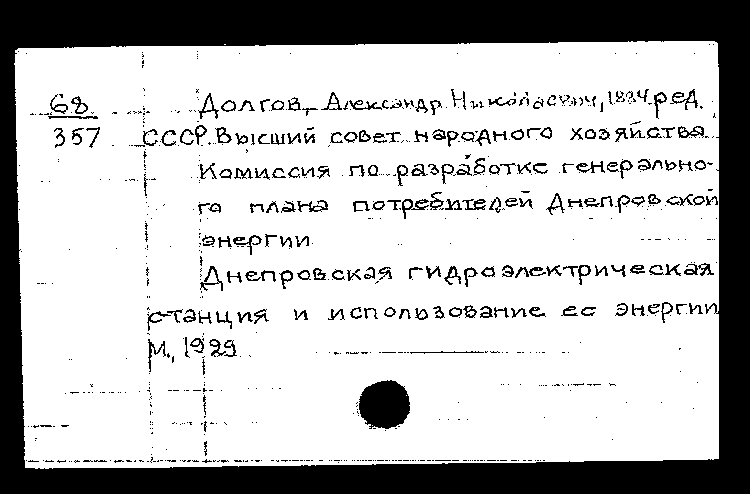 68
357
Долгов, Александр Николаевич, 1884 ред.
СССР. Высший совет народного хозяйства
Комиссия по разработке генерально-
го плана потребителей Днепровской
энергии
Днепровская гидроэлектрическая
станция и использование ее энергии
М., 1929